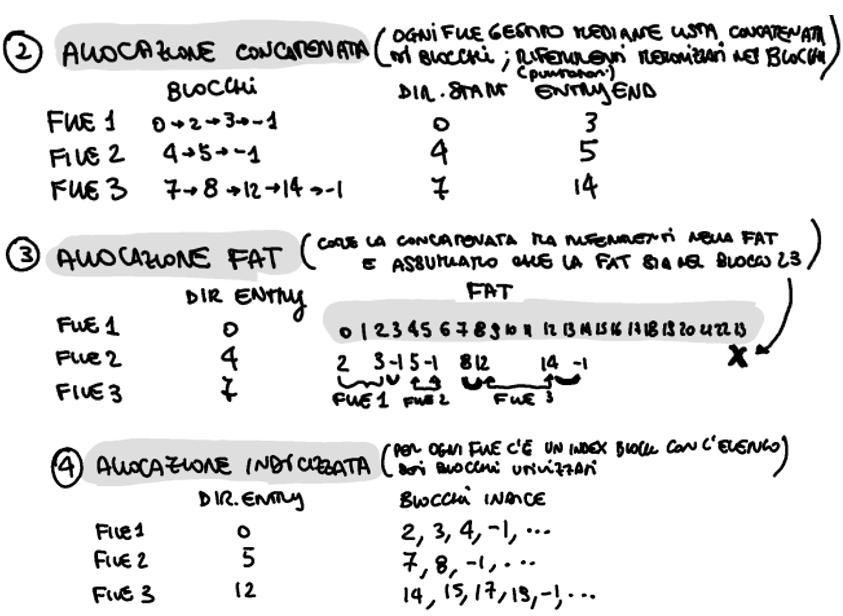 ② ALLOCAZIONE CONCATENATA (OGNI FILE GESTITO MEDIANTE LISTA CONCATENATA
DI BLOCCHI; RIFERIMENTI MEMORIZZATI NEI BLOCCHI)
(puntatori)
BLOCCHI DIR. START ENTRY END
FILE 1 0→2→3→-1 0 3
FILE 2 4→5→-1 4 5
FILE 3 7→8→12→14→-1 7 14
③ ALLOCAZIONE FAT (COME LA CONCATENATA MA RIFERIMENTI NELLA FAT
E ASSUMIAMO CHE LA FAT SIA NEL BLOCCO 23)
DIR ENTRY FAT
FILE 1 0 0 1 2 3 4 5 6 7 8 9 10 11 12 13 14 15 16 17 18 19 20 21 22 23
FILE 2 4 2 3 -1 5 -1 8 12 14 -1 X
FILE 3 7 FILE 1 FILE 2 FILE 3
④ ALLOCAZIONE INDICIZZATA (PER OGNI FILE C'È UN INDEX BLOCK CON L'ELENCO
DEI BLOCCHI UTILIZZATI)
DIR. ENTRY BLOCCHI INDICE
FILE 1 0 2, 3, 4, -1, ...
FILE 2 5 7, 8, -1, ...
FILE 3 12 14, 15, 17, 19, -1, ...